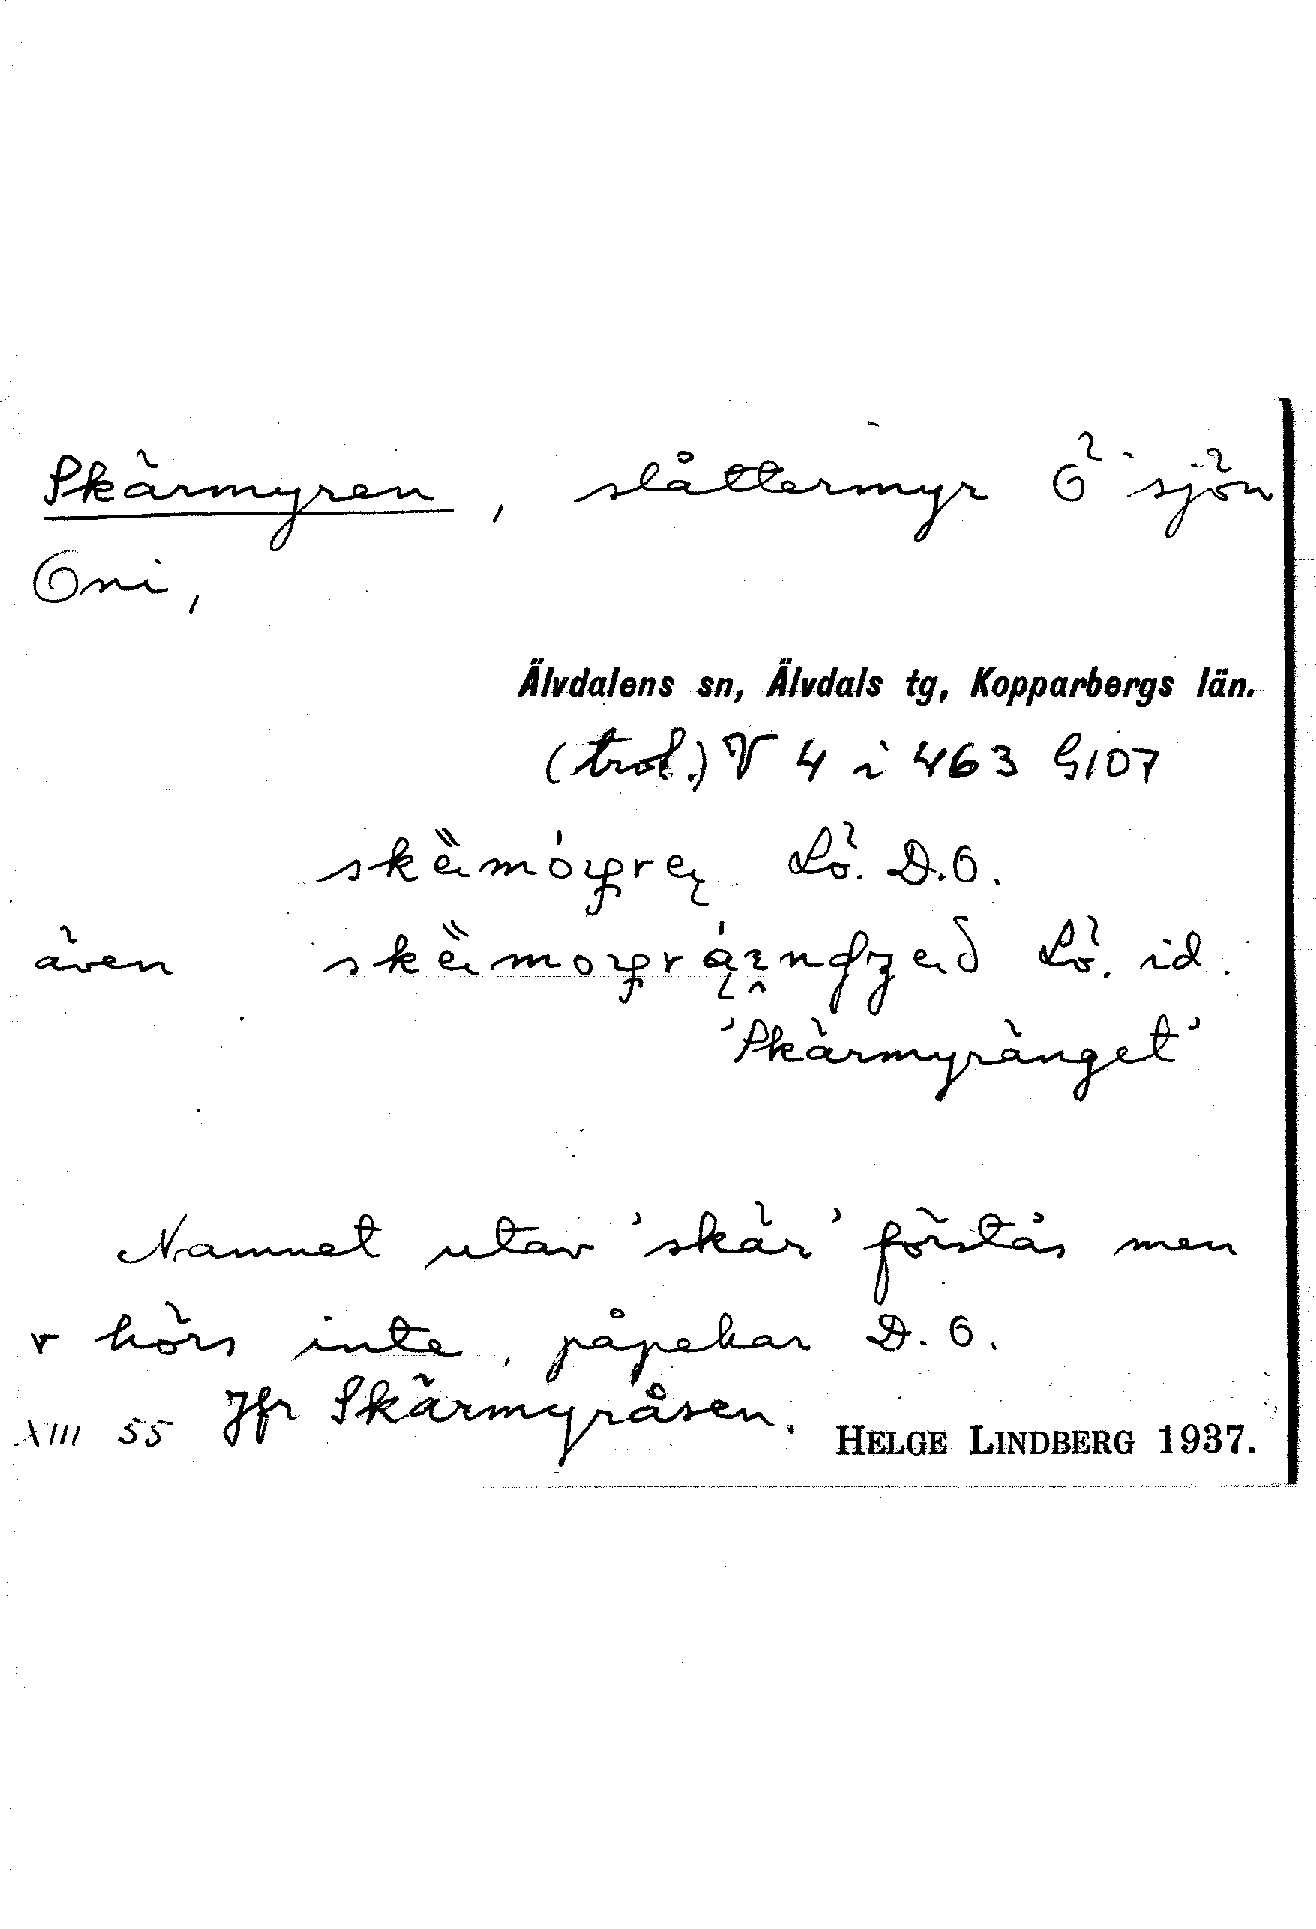 Skärmyren, slåttermyr Ö sjön
Oni,
Älvdalens sn, Älvdals tg, Kopparbergs län.
(trol.) V 4 i 463 G107
Lö. D.O.
även Lö. id.
'Skärmyränget'
Namnet utav 'skär' förstås men
r hörs inte, påpekar D.O.
XIII 55 Jfr Skärmyråsen. HELGE LINDBERG 1937.